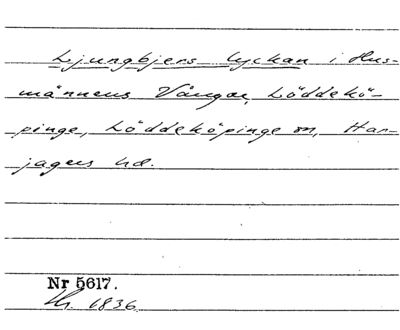 Ljungbjers lyckan i Hus-
männens Vångar, Löddekö-
pinge, Löddeköpinge sn, Har-
jagers hd.
Nr 5617.
1836